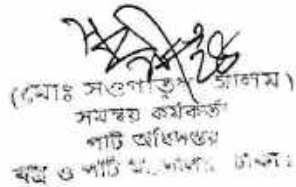 (মোঃ সওগাতুল আলম)
সমন্বয় কর্মকর্তা
পাট অধিদপ্তর
বস্ত্র ও পাট মন্ত্রণালয়, ঢাকা।